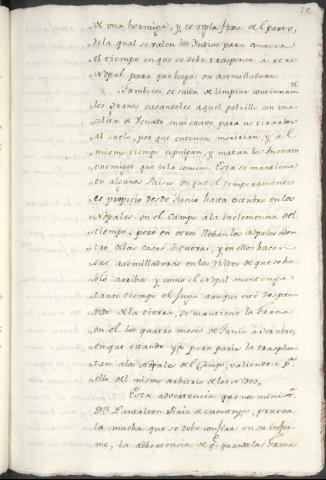 de una hormiga, y es regla fixa del parto,
de la qual se valen los Indios para conocer
el tiempo en que se debe trasponer a otro
Nopal para que haga su asemilladura.
Tambien se cuida de limpiar continuam.te
los Granos sacandoles aquel polvillo con una
colita de Venado mui suave para no tirarlos
al suelo, por que entonces moririan, y al
mismo tiempo espulgan, y matan los
enemigos que se la comen. Esta se mantiene
en algunos Paises en que el temperamento
es propicio desde Junio hasta octubre en los
Nopales en el campo a la inclemencia del
tiempo; pero en otros meten los Nopales den-
tro de las casas ò cuevas, y en ellos hacen
sus asemilladuras en los Nidos de que se ha-
bló arriba y como el Nopal mantenga
tanto tiempo el jugo aunque este despren-
dido de la tierra, se mantiene la Grana
en el los quatro meses de Junio a octubre,
en que estando ya para parir la trasplan-
tan a los Nopales del Campo, valiendose p.a
ello del mismo arbitrio de los Nidos.
Esta advertencia que nos
D.n Pantaleon Ruiz de Montoya, prueva
la mucha que se debe confiar en su infor-
me; la adherencia de q.e quando la Grana